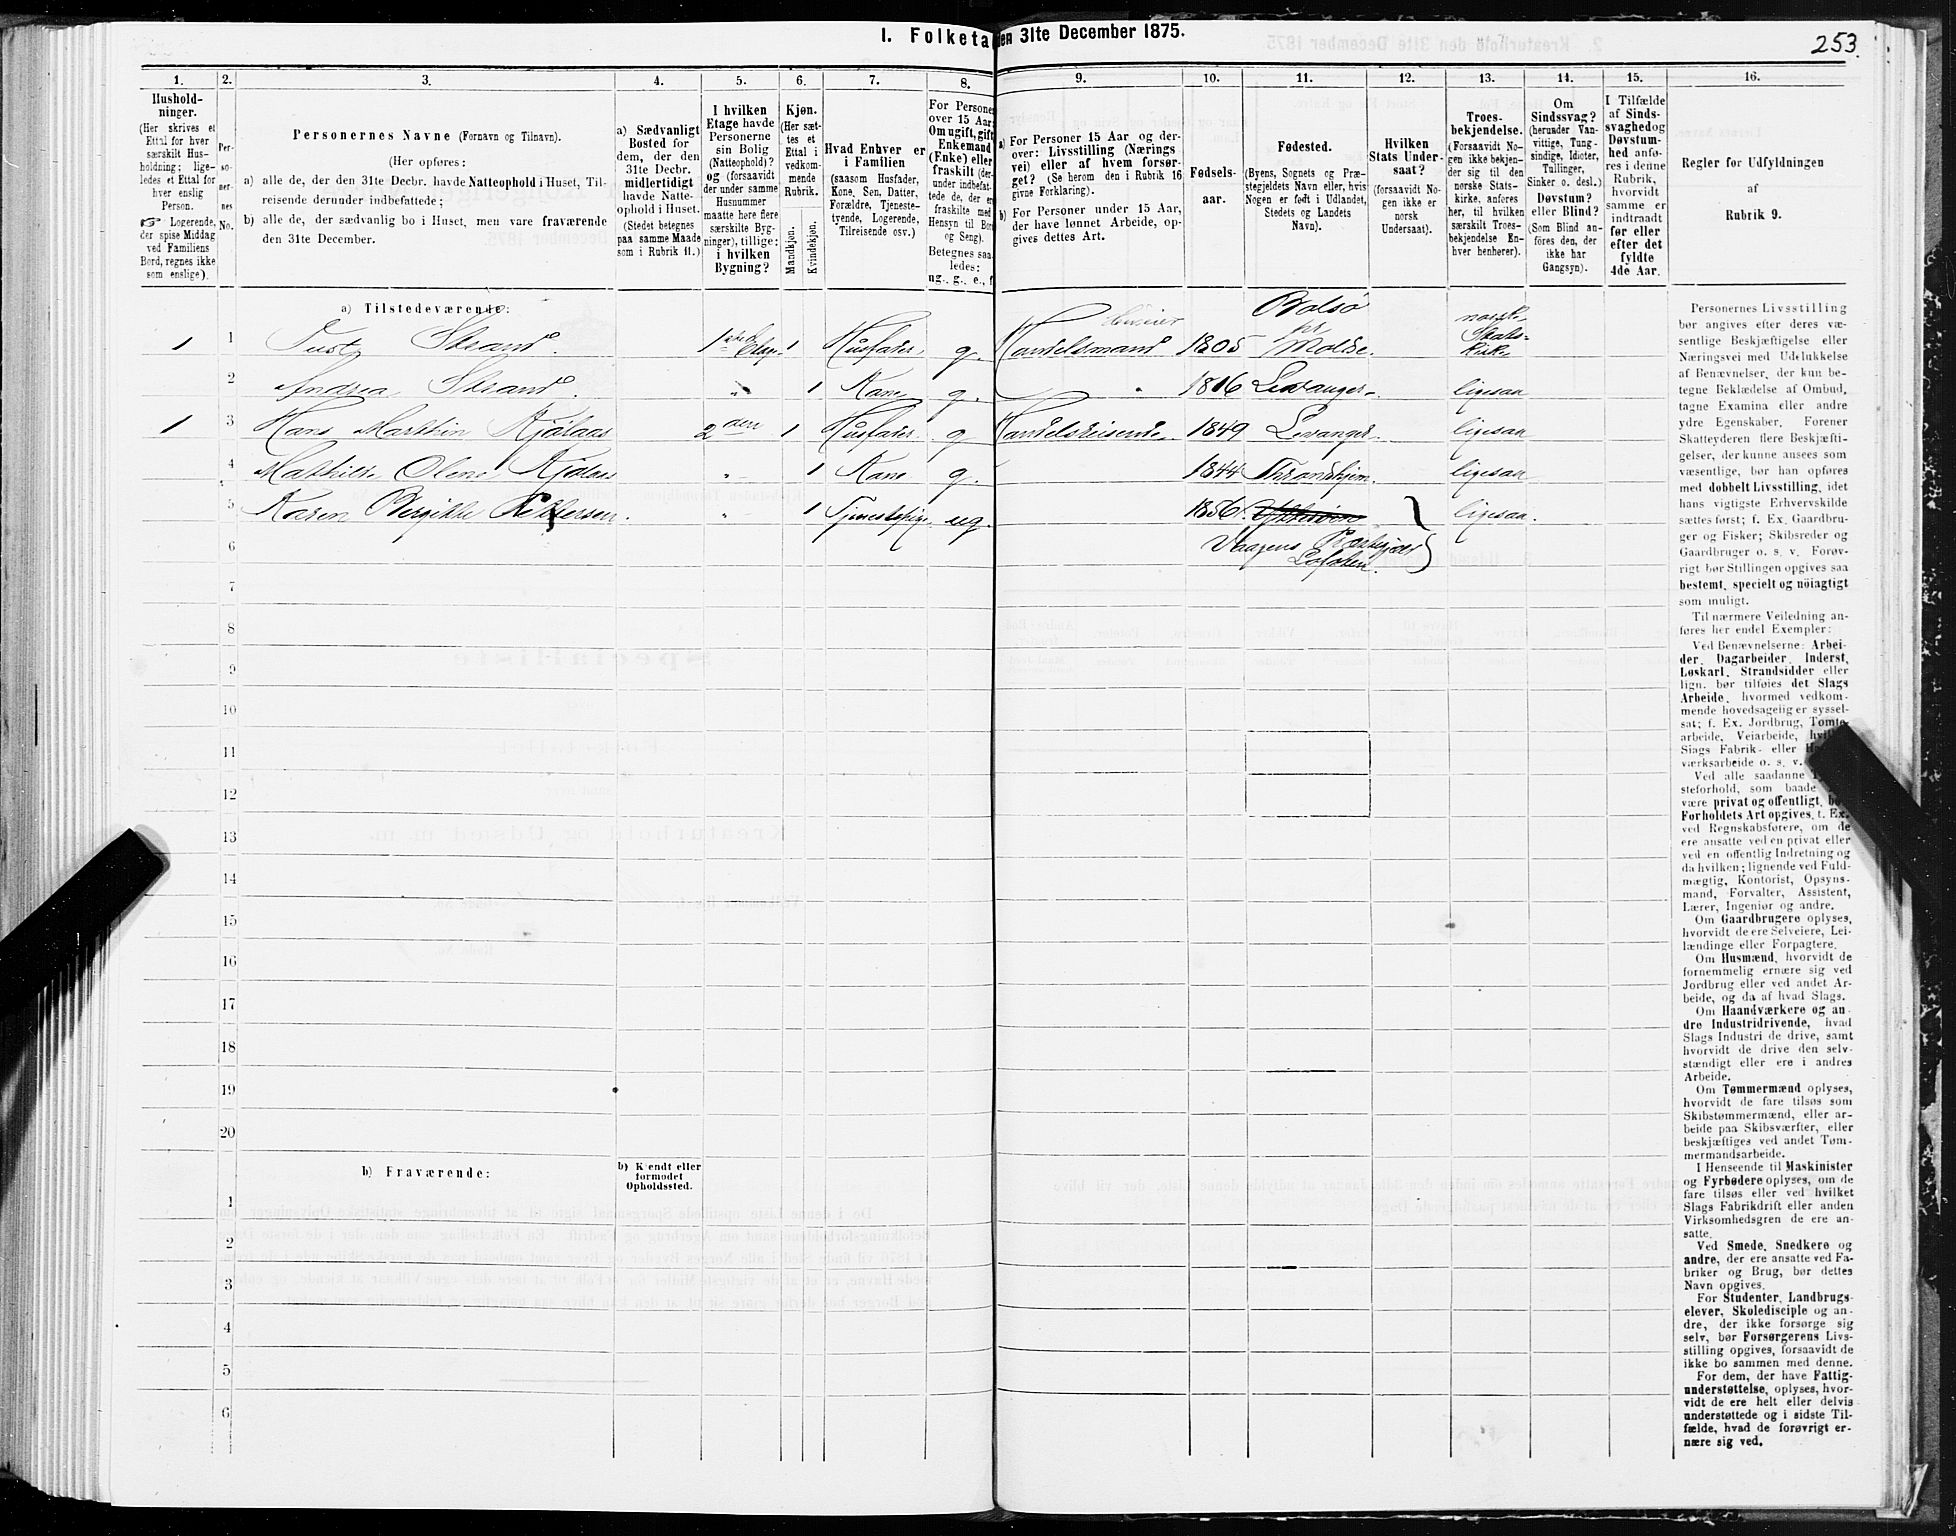 I. Folketa
den 31te December 1875.
253
1.
2.
3.
4.
5.
6.
7.
8.
9.
10.
11.
12.
13.
14.
15.
16.
Hushold-
ninger.
(Her skrives et
Ettal for hver
særskilt Hus-
holdning; lige-
ledes et Ettal for
hver enslig
Person.
☞ Logerende,
der spise Middag
ved Familiens
Bord, regnes ikke
som enslige).
Per-
so-
ner-
nes
No.
Personernes Navne (Fornavn og Tilnavn).
(Her opføres:
a) alle de, der den 31te Decbr. havde Natteophold i Huset, Til-
reisende derunder indbefattede;
b) alle de, der sædvanlig bo i Huset, men vare fraværende
den 31te December.
a) Sædvanligt
Bosted for
dem, der den
31te Decbr.
midlertidigt
havde Natte-
ophold i Huset.
(Stedet betegnes
paa samme Maade
som i Rubrik 11.)
I hvilken
Etage havde
Personerne
sin Bolig
(Natteophold)?
og (forsaavidt
der under samme
Husnummer
maatte høre flere
særskilte Byg-
ninger), tillige:
i hvilken
Bygning?
Kjøn.
(Her sæt-
tes et
Ettal i
vedkom-
mende
Rubrik.
Mandkjøn.
Kvindekjøn.
Hvad Enhver er
i Familien
(saasom Husfader,
Kone, Søn, Datter,
Forældre, Tjeneste-
tyende, Logerende,
Tilreisende osv.)
For Persone
over 15 Aar:
Om ugift, gift
Enkemand
(Enke) eller
fraskilt (der-
under indbefat-
tede de, der er
fraskilte med
Hensyn til Bor
og Seng).
Betegnes saa-
ledes:
ug., g., e., f
a) For Personer 15 Aar og der-
over: Livsstilling (Nærings
vei) eller af hvem forsør-
get? (Se herom den i Rubrik 16
givne Forklaring).
b) For Personer under 15 Aar,
der have lønnet Arbeide, op-
gives dettes Art.
Fødsels-
aar.
Fødested.
(Byens, Sognets og Præ-
stegjeldets Navn eller, hvis
Nogen er født i Udlandet,
Stedets og Landets
Navn).
Hvilken
Stats Under-
saat?
(forsaavidt No-
gen ikke er
norsk
Undersaat).
Troes-
bekjendelse.
(Forsaavidt No-
gen ikke bekjen-
der sig til den
norske Stats-
kirke, anføres
her, til hvilken
særskilt Troes-
bekjendelse En-
hver henhører).
Om
Sindssvag?
(herunder Van-
vittige, Tung-
sindige, Idioter,
Tullinger,
Sinker o. desl.)
Døvstum?
eller Blind?
(Som Blind an-
føres den, der
ikke har
Gangsyn).
I Tilfælde
af Sinds-
svaghed og
Døvstum-
hed anfø-
res i denne
Rubrik,
hvorvidt
samme er
indtraadt
før eller
efter det
fyldte
4de Aar.
Regler for Udfyldningen
af
Rubrik 9.
a) Tilstedeværende:
1 1 Just Strand. 1ste Etage 1 Husfader, g. Handelsmand 1805 Bolsø pr Molde. norske Stats-kirke
2 Andrea Strand. " 1 Kone g. " 1816 Levanger. ligesaa
1 3 Hans Marthin Kjølaas 2den 1 Husfader. g Handelsreisende 1849 Levanger. ligesaa
4 Mathilde Oline Kjølaas " 1 Kone g. 1844 Throndhjem. ligesaa
5 Karen Bergitte Pettersen. " 1 Tjenestepige ug. 1856. ligesaa.
Vaagens Præstegjeld
Lofoten.
6
7
8
9
10
11
12
13
14
15
16
17
18
19
20
b) Fraværende:
b) Kjendt eller
formodet
Opholdssted.
1
2
3
4
5
6
Personernes Livsstilling
bør angives efter deres væ-
sentlige Beskjæftigelse eller
Næringsvei med Udelukkelse
af Benævnelser, der kun be-
tegne Beklædelse af Ombud,
tagne Examina eller andre
ydre Egenskaber. Forener
Skatteyderen flere Beskjæfti-
gelser, der kunne ansees som
væsentlige, bør han opføres
med dobbelt Livsstilling, idet
hans vigtigste Erhvervskilde
sættes først; f. Ex. Gaardbru-
ger og Fisker; Skibsreder og
Gaardbruger o. s. v. Forøv-
rigt bør Stillingen opgives saa
bestemt, specielt og nøiagtigt
som muligt.
Til nærmere Veiledning an-
føres her endel Exempler:
Ved Benævnelserne: Arbei-
der, Dagarbeider, Inderst,
Løskarl, Strandsidder eller
lign. bør tilføies det Slags
Arbeide, hvormed vedkom-
mende hovedsagelig er syssel-
sat; f. Ex. Jordbrug, Tomte-
arbeide, Veiarbeide, hvilket
Slags Fabrik- eller
værksarbeide o. s. v.
Ved alle saadanne
steforhold, som baade
være privat og offentligt, bør
Forholdets Art opgives, f. Ex.
ved Regnskabsførere, om de
ere ansatte ved en privat eller
ved en offentlig Indretning og
da hvilken; lignende ved Fuld-
mægtig, Kontorist, Opsyns-
mand, Forvalter, Assistent,
Lærer, Ingeniør og andre.
Om Gaardbrugere oplyses,
hvorvidt de ere Selveiere, Lei-
lændinge eller Forpagtere.
Om Husmænd, hvorvidt de
fornemmelig ernære sig ved
Jordbrug eller ved andet Ar-
beide, og da af hvad Slags.
Om Haandværkere og an-
dre Industridrivende, hvad
Slags Industri de drive, samt
hvorvidt de drive den selv-
stændigt eller ere i andres
Arbeide.
Om Tømmermænd oplyses,
hvorvidt de fare tilsøs som
Skibstømmermænd, eller ar-
beide paa Skibsværfter, eller
beskjæftiges ved andet Tøm-
mermandsarbeide.
I Henseende til Maskinister
og Fyrbødere oplyses, om de
fare tilsøs eller ved hvilket
Slags Fabrikdrift eller anden
Virksomhedsgren de ere an-
satte.
Ved Smede, Snedkere og
andre, der ere ansatte ved Fa-
briker og Brug, bør dettes
Navn opgives.
For Studenter, Landbrugs-
elever, Skoledisciple og an-
dre, der ikke forsørge sig
selv, bør Forsørgerens Livs-
stilling opgives, forsaavidt de
ikke bo sammen med denne.
For dem, der have Fattig-
understøttelse, oplyses, hvor-
vidt de ere helt eller delvis
understøttede og i sidste Til-
fælde, hvad de forøvrigt er-
nære sig ved.